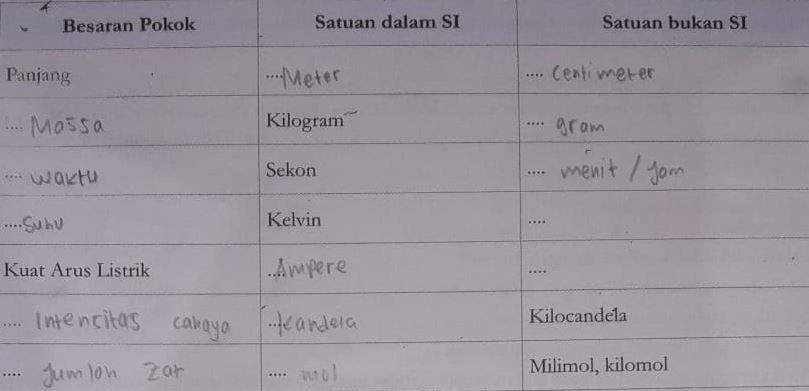 Besaran Pokok Satuan dalam SI Satuan bukan SI
Panjang ....Meter .... Centimeter
.... Massa Kilogram .... gram
.... waktu Sekon .... menit / jam
....Suhu Kelvin ....
Kuat Arus Listrik ..Ampere ....
.... Intencitas cahaya ..kandela Kilocandela
.... Jumlah Zat .... mol Milimol, kilomol